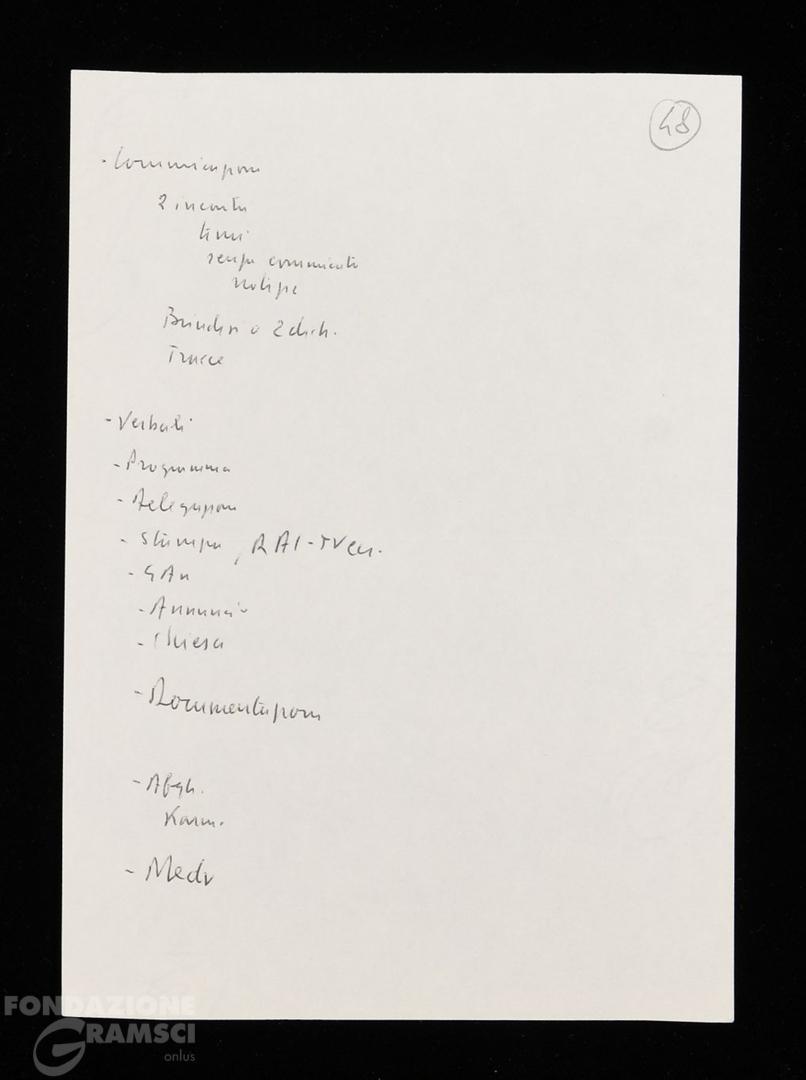 48
- Comunicazione
2 incontri
temi
senza comunicati
notizie
Brindisi o 2 dich.
Tracce
- Verbali
- Programma
- Delegazione
- Stampa, RAI-TV ecc.
- Annuncio
- Chiesa
- Documentazione
- Afgh.
Karm.
- Medv
FONDAZIONE
GRAMSCI
onlus